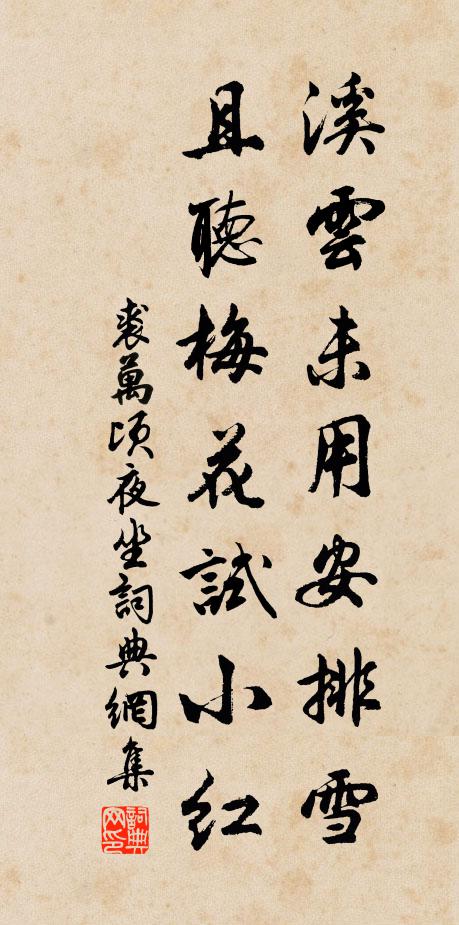 溪雲未用安排雪
且聽梅花試小紅
裘萬頃夜坐詞典網集
詞典
网印